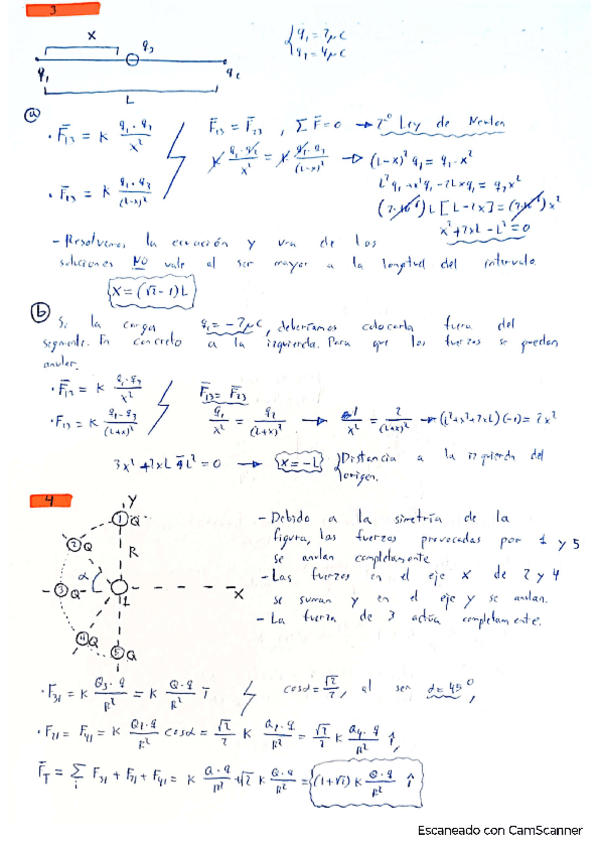 3
x
q₃
{q₁ = 2μC
q₂ = 4μC
q₁
q₂
L
a
· F̄₁₃ = K q₁·q₃/x²
F̄₁₃ = F̄₂₃ , ΣF̄=0 → 2º Ley de Newton
K q₁·q₃/x² = K q₂·q₃/(L-x)² → (L-x)² q₁ = q₂·x²
L² q₁ + x² q₁ - 2Lx q₁ = q₂ x²
(2·10⁻⁶) L [L - 2x] = (2·10⁻⁶) x²
x² + 2xL - L² = 0
- Resolvemos la ecuación y una de las
soluciones NO vale al ser mayor a la longitud del intervalo.
x = (√2 - 1) L
b
Si la carga = -2μC, deberíamos colocarla fuera del
segmento. En concreto a la izquierda. Para que las fuerzas se puedan
anular.
F̄₁₃ = F̄₂₃
q₁/x² = q₂/(L+x)² → 1/x² = 2/(L+x)² → (L²+x²+2xL)(-1) = 2x²
→ x = -L } Distancia a la izquierda del
origen.
4
Y
1 Q
2 Q
R
α
3 Q
X
4 Q
5 Q
- Debido a la simetría de la
figura, las fuerzas provocadas por 1 y 5
se anulan completamente
- Las fuerzas en el eje X de 2 y 4
se suman y en el eje y se anulan.
- La fuerza de 3 actúa completamente.
cosα = √2/2, al ser α = 45º,
F̄_T = Σ F₃₁ + F₂₁ + F₄₁ = K Q·q/R² + √2 K Q·q/R² = (1+√2) K Q·q/R² î
Escaneado con CamScanner